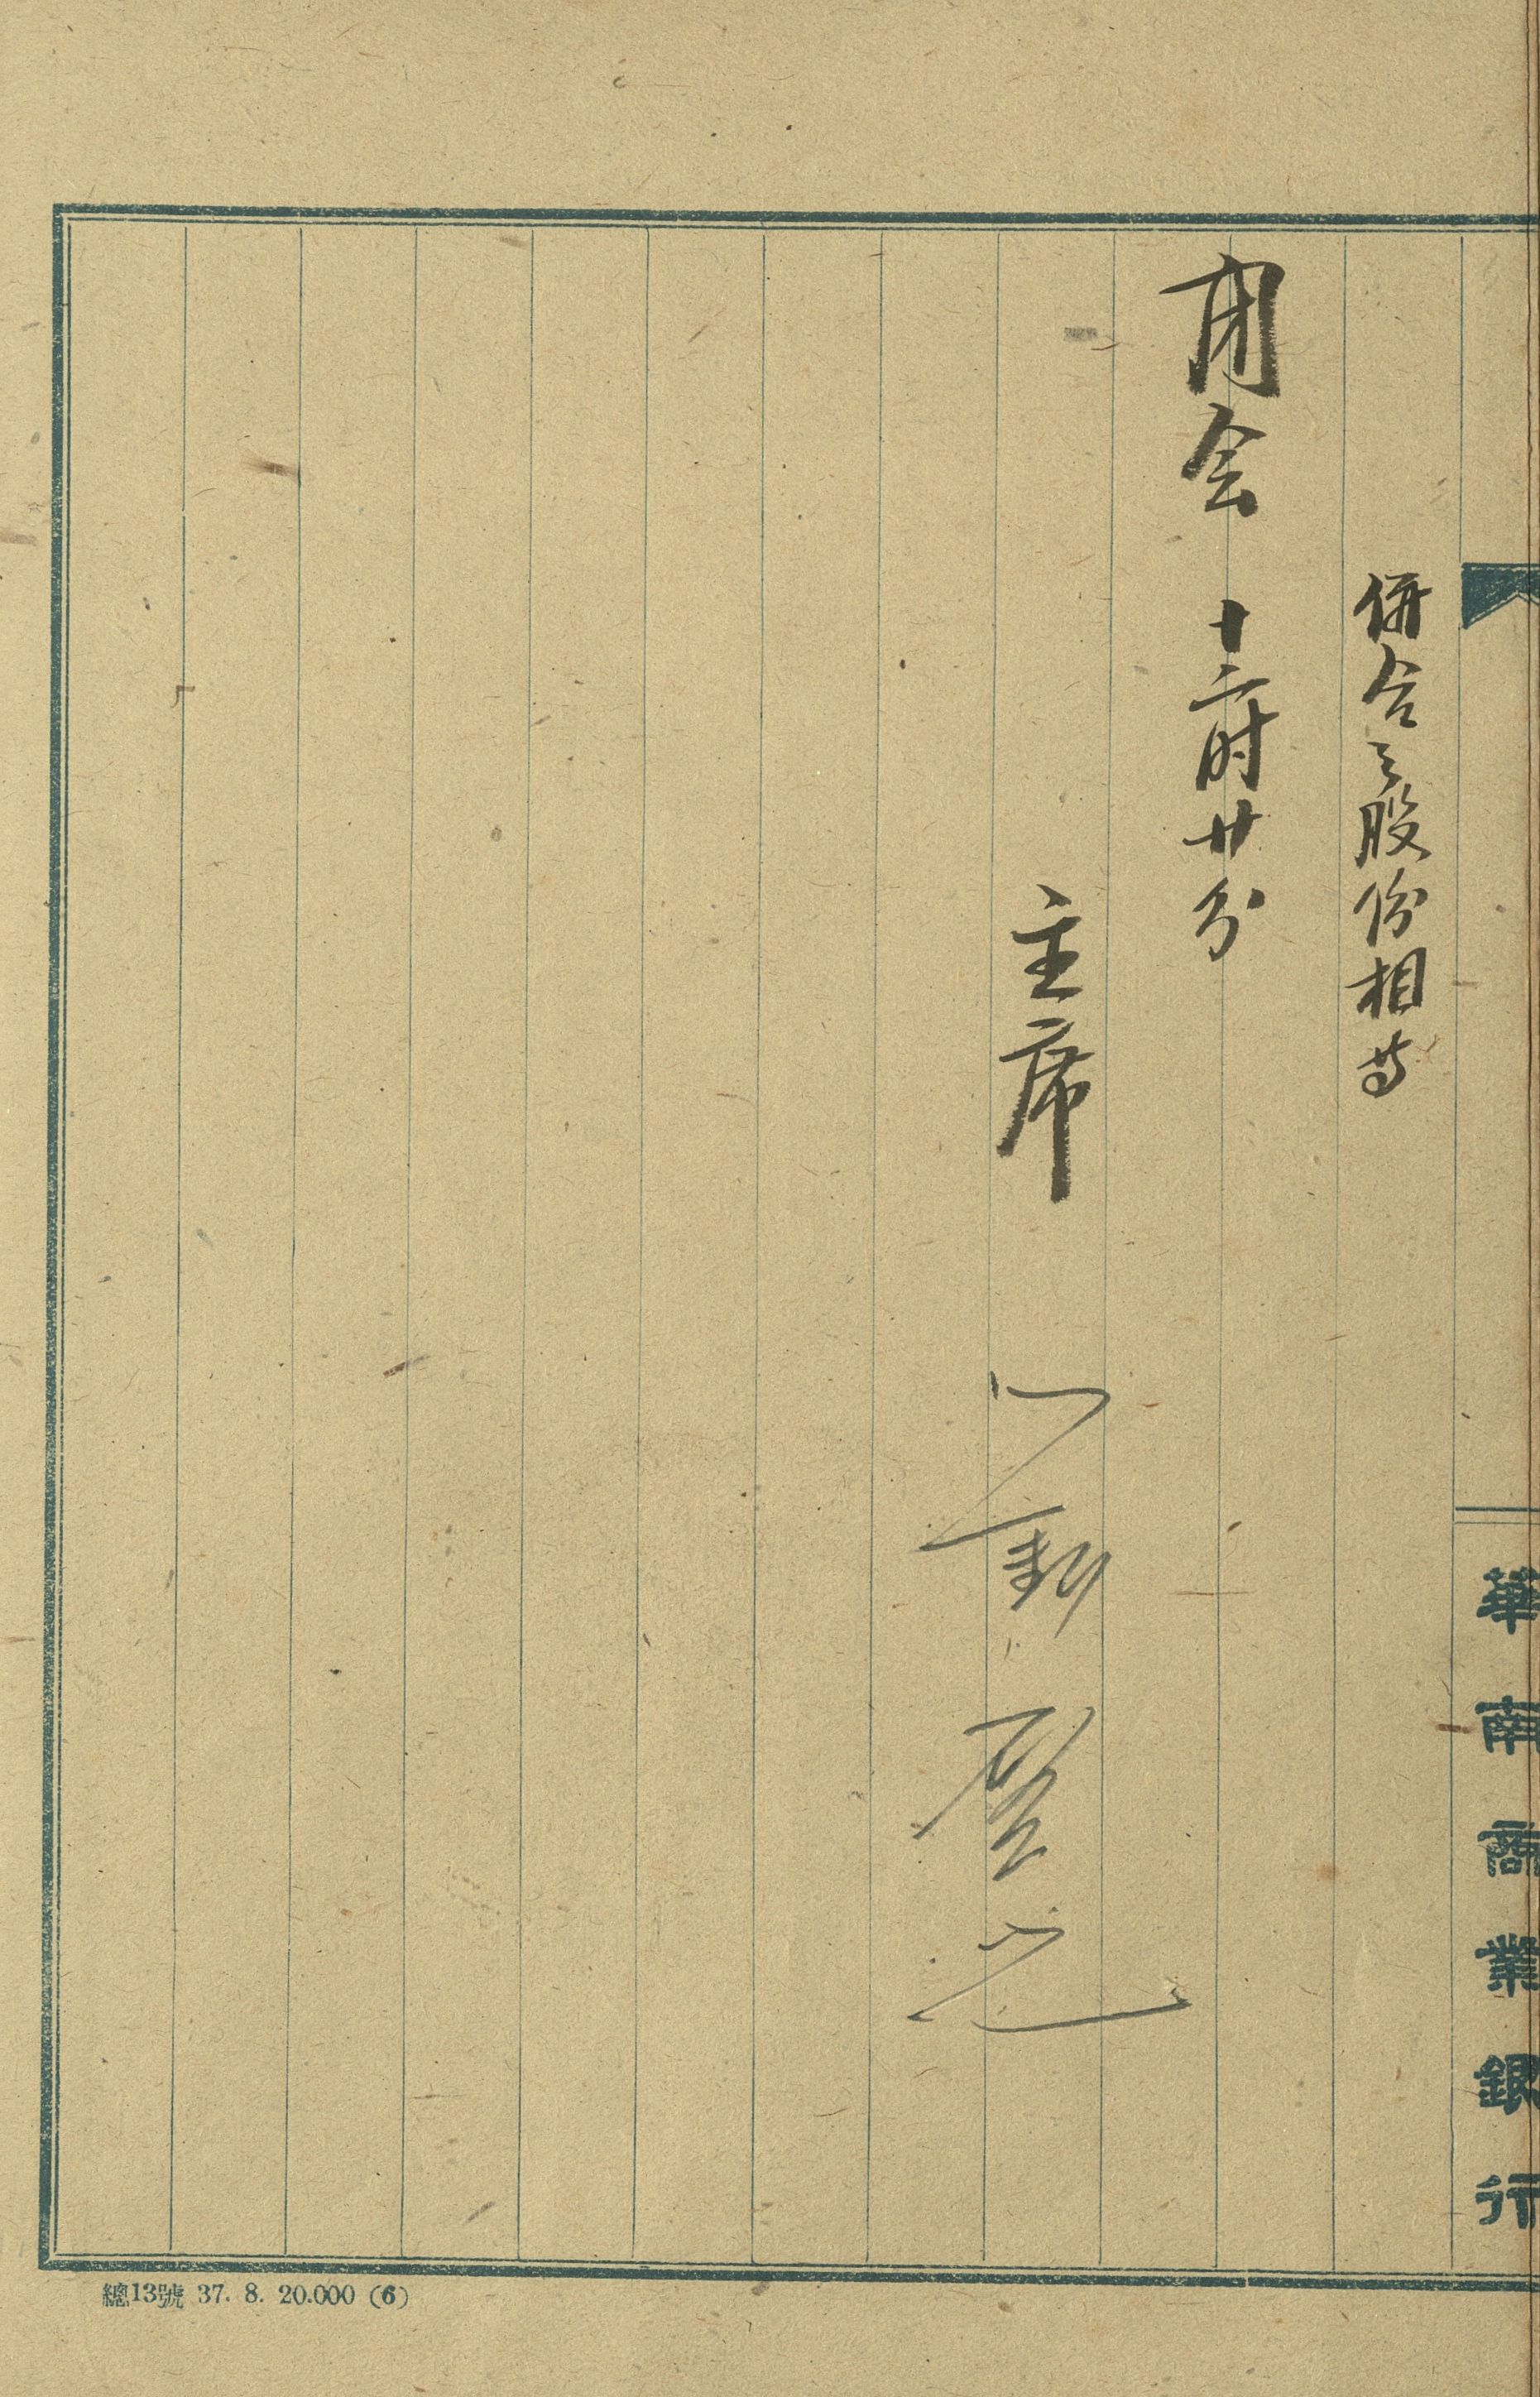 華南商業銀行
併合之股份相等
閉会 十二时廿分
主席 劉啓光
總13號 37. 8. 20.000 (6)